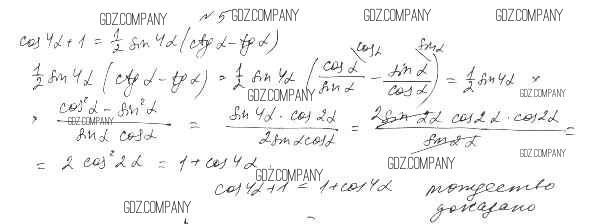 GDZ.COMPANY №5 GDZ.COMPANY GDZ.COMPANY GDZ.COMPANY
cos4α+1 = 1/2 sin4α(ctgα-tgα)
cosα sinα
1/2 sin4α (ctgα-tgα) = 1/2 sin4α (cosα/sinα - sinα/cosα) = 1/2 sin4α ×
GDZ.COMPANY GDZ.COMPANY
× (cos²α - sin²α)/(sinα cosα) = (sin4α · cos2α)/(2sinαcosα) = (2sin2α cos2α · cos2α)/(sin2α) =
GDZ.COMPANY
= 2 cos²2α = 1+cos4α
GDZ.COMPANY GDZ.COMPANY GDZ.COMPANY
cos4α+1 = 1+cos4α тождество
доказано
GDZ.COMPANY